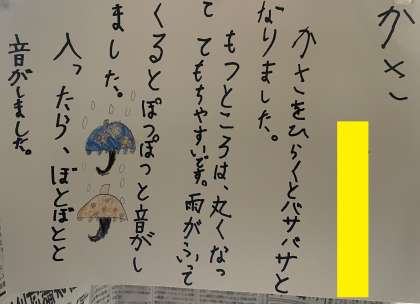 かさ
かさをひらくとバサバサと
なりました。
もつところは、丸くなっ
て
てもちやすいです。雨がふって
くるとぽつぽつと音がし
ました。
入ったら、ぼとぼとと
音がしました。